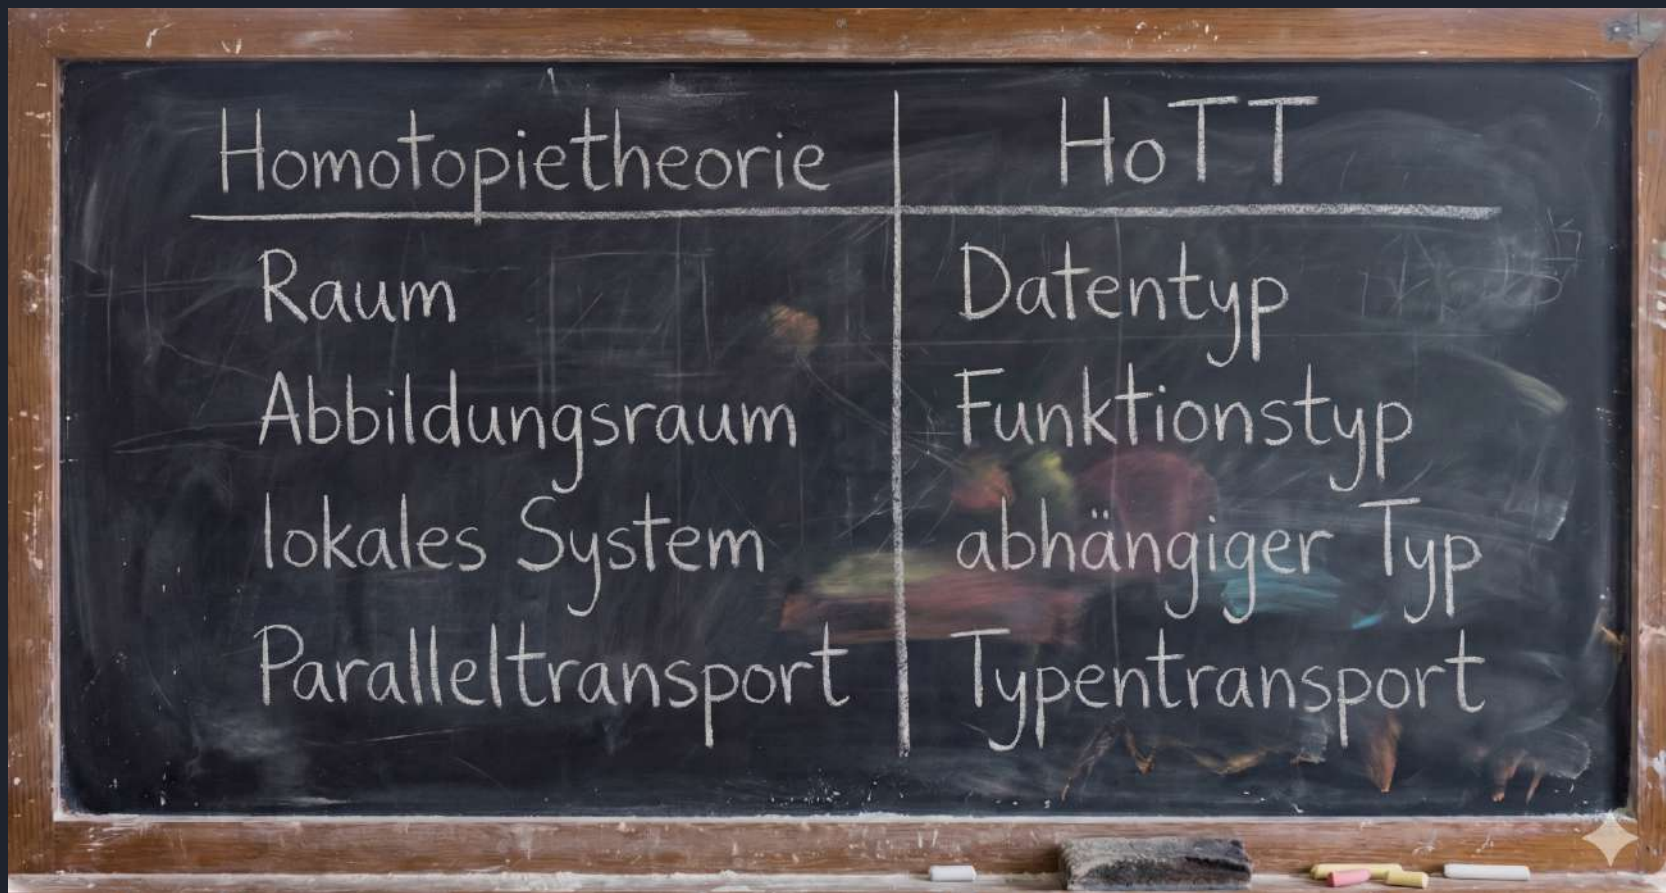 Homotopietheorie HoTT
Raum Datentyp
Abbildungsraum Funktionstyp
lokales System abhängiger Typ
Paralleltransport Typentransport